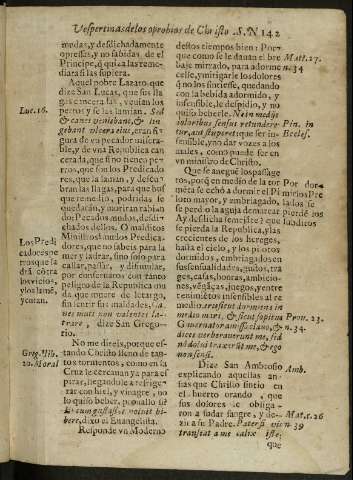 Vespertinas de los oprobios de Christo. S.N 142
medas, y desdichadamente
opressas, y no sabidas de el
Principe, q̃ quiza las reme-
diara si las supiera.
Aquel pobre Lazaro, que
dize San Lucas, que sus lla-
gas encerauan, venian los
perros y se las lamian. Sed
& canes veniebant, & lin-
gebant vlcera eius, eran fi-
gura de vn pecador misera-
ble, y de vna Republica can
cerada, que si no tiene pe-
rros, que son los Predicado
res, que la laman, y descu-
bran las llagas, para que bus
que remedio, podridas se
quedarán, y moriran rabian
dos Pecados mudos, desdi-
chados dellos. O malditos
Ministros mudos Predica-
dores, que no sabeis para la
mer y ladrar, sino solo para
callar, passar, y disimular,
por conseruaros con tanto
peligro de la Republica mu
da, que muere de letargo,
sin sentir sus maldades. Ca-
nes muti non valentes la-
trare, dize San Grego-
rio.
No me direis, porque es-
tando Christo lleno de tan-
tos tormentos, como en la
Cruz le cercauan ya para es-
pirar, llegandole a refrige-
rar con hiel, y vinagre, no
lo quiso beber, prouallo sí?
Et cum gustasset noluit bi-
bere, dixo el Euangelista.
Responde vn Moderno
Luc. 16.
Los Predi
cadores pe
rros que la
drã cõtra
los vicios,
y los mal
Greg. lib.
20. Moral
destos tiempos bien: Por-
que como se le dauan el bre
baje mirrado, para adorme
celle, y mitigarle los dolores
q̃ no los sintiesse, quedando
con la bebida adormido, y
insensible, le despidio, y no
quiso beberle. Ne in medijs
doloribus sensus retundere-
tur,
sensible, y no dar vozes a los
males, como puede ser en
vn ministro de Christo.
Que se anegué los passage
ros, porq̃ en medio de la tor
mẽta se echò a dormir el Pi
loto mayor, y embriagado,
se perdio la aguja de marear
Ay desdicha semejãte? que
se pierda la Republica, y las
crecientes de los hereges,
hasta el cielo, y los pilotos
dormidos, embriagados en
sus sensualidades, gustos, tra
ges, casas, honras, ambicio-
nes, vẽgãças, juegos, y entre
tenimientos
medio.
mari, & sicut sopitus
Gubernator amisso clauo, &
verberauerunt me, sed
nõ dolui traxerũt me, & ego
non sensi.
Dize San Ambrosio
explicando aquellas an-
sias que Christo sintio en
el huerto orando, que
sus dolores le obliga-
ron a sudar sangre, y de-
zir a su Padre. Pater si
transeat a me calix iste;
que
Matt. 27.
n. 34
Pin. in
Eccles.
Por dor-
mirlos Pi-
lotos se
pierdẽ los
Prou. 23.
n. 34.
Amb.
Mat. c. 26
n. 39